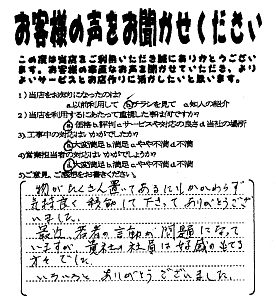 お客様の声をお聞かせください
この度は当店をご利用いただき誠にありがとうござい
ます。お客様の率直なお声をお聞かせください。より
よいサービスとお店作りに活かしたいと思います。
1)当店をお知りになったのは?
a.以前利用して b.チラシを見て c.知人の紹介
2)当店を利用するにあたって重視した事は何ですか?
a.価格 b.評判 c.サービスや対応の良さ d.当社の場所
3)工事中の対応はいかがでしたか?
a.大変満足 b.満足 c.やや不満 d.不満
4)営業担当者の対応はいかがでしょうか?
a.大変満足 b.満足 c.やや不満 d.不満
5)ご意見、ご感想をお書きください。
物がたくさん置いてあるにもかかわらず
気持良く移動して下さってありがとうござ
いました。
最近、若者の言動が問題になって
いますが、貴社の社員は好感の持てる
方々でした。
いろいろと ありがとうございました。